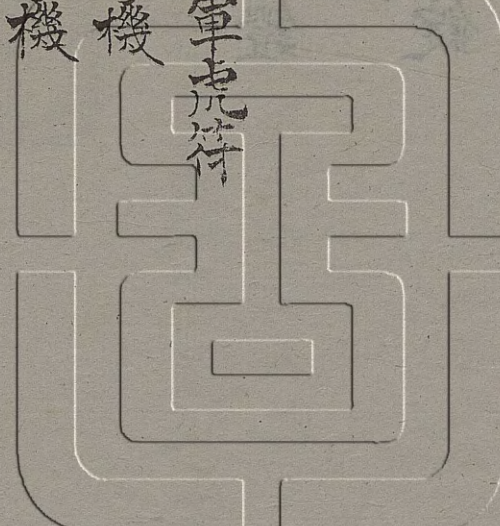 軍虎符
機
機